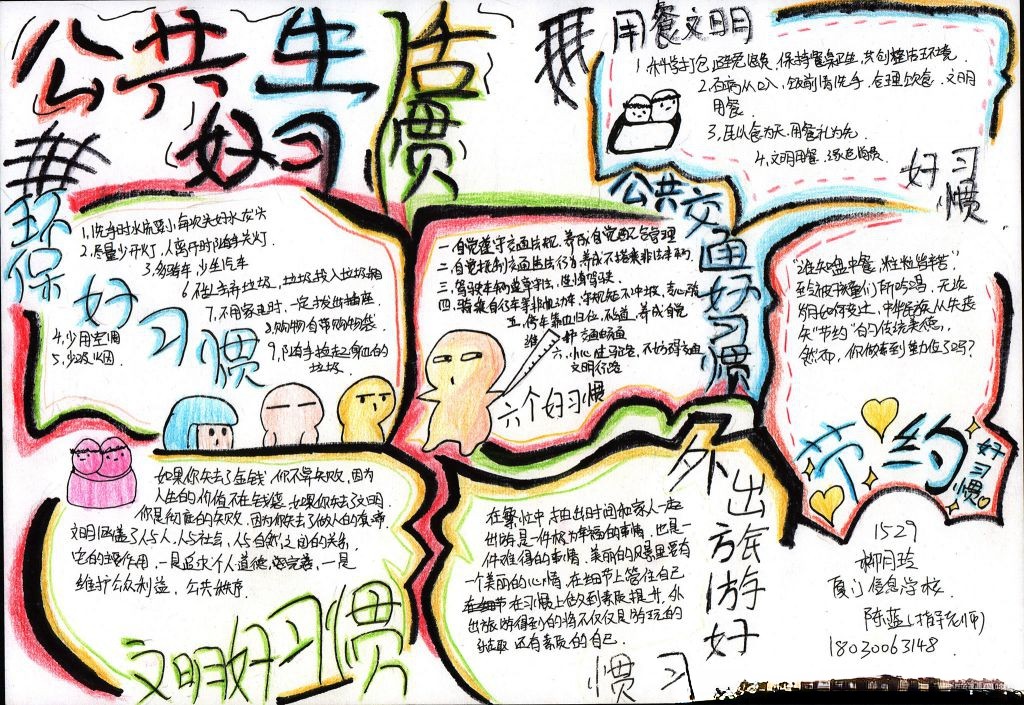 公共生活
好习惯
用餐文明
1.科学打包,避免浪费,保持餐桌卫生,共创整洁环境.
2.否病从口入,饭前请洗手,合理饮食,文明
用餐
3.民以食为天,用餐礼为先.
4.文明用餐,
好习
惯
环保
好习惯
1,洗手时水流要小,每次关好水龙头
2.尽量少开灯,人离开时随手关灯.
3.多骑车,少坐汽车
4.少用空调
5.少吸烟
6.不乱丢弃垃圾,垃圾投入垃圾箱
7.不用家电时,一定拔出插座.
8.购物自带购物袋.
9.随手捡起身边的
垃圾.
公共交通好习惯
一.自觉遵守交通法规,养成自觉配合管理
二.自觉抵制交通违法行为,养成不搭乘非法车辆.
三.驾驶车辆遵章守法,谨慎驾驶
四.骑乘自行车等非机动车,守规矩不冲坡,
五,停车靠边归位,不乱道,养成自觉
维护交通畅通
六,小心过马路,不妨碍交通
文明行路
六个好习惯
“谁知盘中餐,粒粒皆辛苦”
至今被孩童们所吟唱.无论
岁月如何变迁,中华民族从未丢
失“节约”的传统美德,
然而,你做有到单位了吗?
节约
好习惯
如果你失去了金钱,你不算失败,因为
人生的价值不在钱袋.如果你失去文明,
你是彻底的失败,因为你失去了做人的真谛
文明涵盖了人与人,人与社会,人与自然之间的关系,
它的主要作用,一是追求个人道德,完善,一是
维护公众利益,公共秩序.
文明好习惯
外出旅游好
习惯
在繁忙中,抽出时间和家人一起
出游是一件极为幸福的事情,也是一
件难得的事情,美丽的风景里要有
一个美丽的心情,在细节上管住自己
在习惯上做到素质提升,外
出旅游得到的将不仅仅是游玩的
还有素质的自己.
1529
柳月玲
厦门信息学校
陈蓝(指导老师)
18030063148.